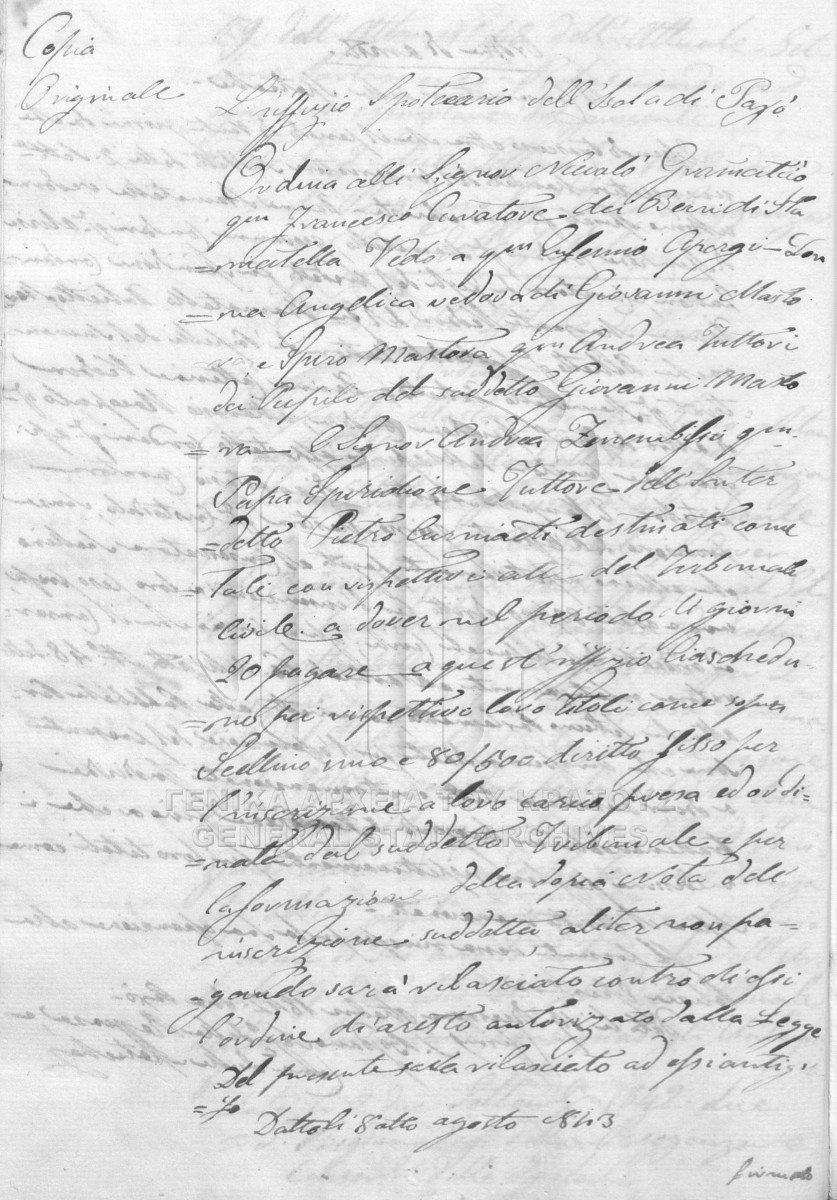 Copia
Originale
L'uffizio Ipotecario dell'Isola di Paxò
Ordina alli Signor Nicolò Gramaticò
qm Francesco Curatore dei Beni di Sta
=matella Vedova qm Eufemio Apergi - Don
=na Angelica vedova di Giovanni Masto
e Spiro Mastora qm Andrea Tuttori
dei Pupili del suddetto Giovanni Masto
=ra - E Signor Andrea qm
Papa Spiridione Tuttore dell'Inter
=detto Pietro destinati come
Tali con rispettivi atti del Tribunale
Civile a dover nel periodo di giorni
20 pagare a quest'uffizio Ciaschedu-
=no pei rispettivo loro titoli come sopra
Scellino uno e 80/500 diritto fisso per
l'inscrizine a loro carico presa ed ordi=
=nata dal suddetto Tribunale e per
la formazion della dopia Nota del
inscrizione suddetta, aliter non pa-
gando sarà rilasciato contro di essi
l'ordine di aresto autorizato dalla Legge
Del presente sarà rilasciato ad essi
Datto li 8 otto agosto 1843
firmato
ΓΕΝΙΚΑ ΑΡΧΕΙΑ ΤΟΥ ΚΡΑΤΟΥΣ
GENERAL STATE ARCHIVES